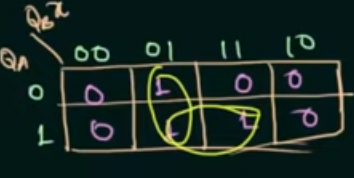 Q_B x
Q_A 00 01 11 10
0 0 1 0 0
1 0 1 1 0